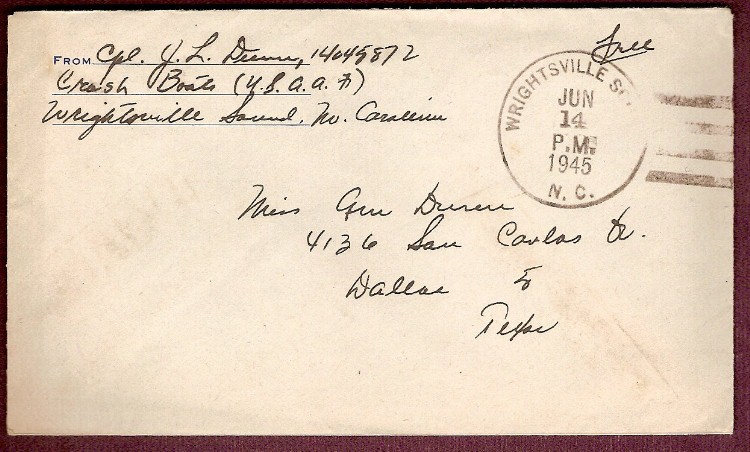 Free
FROM Cpl. J. L. Duren, 14049872
Crash Boats (U.S.A.A.F)
Wrightsville Sound, No. Carolina
WRIGHTSVILLE
JUN
14
P.M.
1945
N. C.
Miss Ann Duren
4136 San Carlos Dr.
Dallas 5
Texas